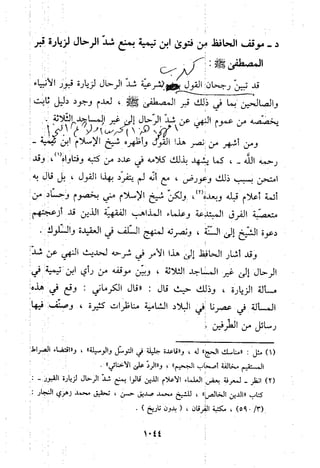 د - موقف الحافظ من فتوى ابن تيمية بمنع شدّ الرحال لزيارة قبر
المصطفى ﷺ:
قد تبيّن رجحان القول بشرعيّة شدّ الرحال لزيارة قبور الأنبياء
والصالحين بما في ذلك قبر المصطفى ﷺ، لعدم وجود دليل ثابت
يخصّصه من عموم النهي عن شدّ الرحال إلى غير المساجد الثلاثة.
ومن أشهر من نصر هذا القول وأظهره شيخ الإسلام ابن تيمية -
رحمه الله -. كما يشهد بذلك كلامه في عدد من كتبه وفتاواه(١)، وقد
امتحن بسبب ذلك وعورض، مع أنّه لم يتفرّد بهذا القول، بل قال به
أئمة أعلام قبله وبعده(٢)، ولكنّ شيخ الإسلام مني بخصوم وحسّاد من
متعصبة الفرق المبتدعة وعلماء المذاهب الفقهيّة الذين قد أزعجتهم
دعوة الشيخ إلى السنّة، ونصرته لمنهج السلف في العقيدة والسلوك.
وقد أشار الحافظ إلى هذا الأمر في شرحه لحديث النهي عن شدّ
الرحال إلى غير المساجد الثلاثة، وبيّن موقفه من رأي ابن تيمية في
مسألة الزيارة، وذلك حيث قال: «قال الكرماني: وقع في هذه
المسألة في عصرنا في البلاد الشامية مناظرات كثيرة، وصنّف فيها
رسائل من الطرفين
(١) مثل: «مناسك الحج» له، و«قاعدة جليلة في التوسّل والوسيلة»، و«اقتضاء الصراط
المستقيم مخالفة أصحاب الجحيم»، و«الردّ على الأخنائي».
(٢) انظر - لمعرفة بعض العلماء الأعلام الذين قالوا بمنع شدّ الرحال لزيارة القبور -:
كتاب «الدين الخالص»، للشيخ محمد صديق حسن، تحقيق محمد زهري النجار:
(٣/ ٥٩٠)، مكتبة الفرقان، (بدون تاريخ).
١٠٤٤